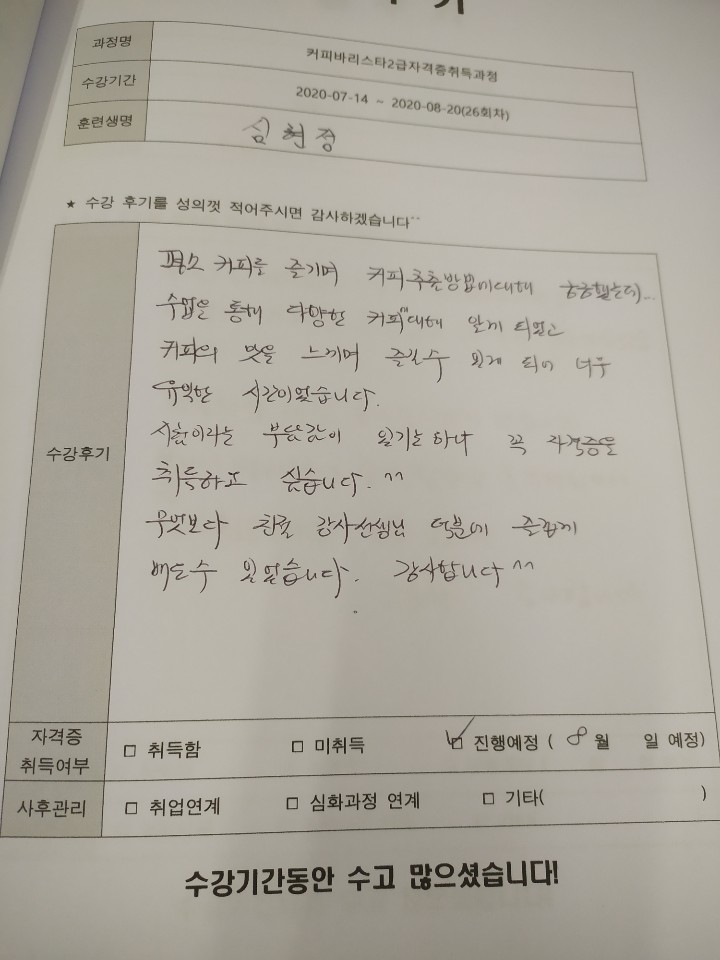 기
과정명 커피바리스타2급자격증취득과정
수강기간 2020-07-14 ~ 2020-08-20(26회차)
훈련생명 심현정
★ 수강 후기를 성의껏 적어주시면 감사하겠습니다^^
수강후기
평소 커피를 즐기며 커피추출방법에대해 궁금했는데...
수업을 통해 다양한 커피에대해 알게 되었고
커피의 맛을 느끼며 즐길수 있게 되어 너무
유익한 시간이었습니다.
시험이라는 부담감이 있기는 하나 꼭 자격증을
취득하고 싶습니다. ^^
무엇보다 강사선생님 덕분에 즐겁게
배울수 있었습니다. 감사합니다 ^^
자격증 취득여부 □ 취득함 □ 미취득 ☑ 진행예정 ( 8월 일 예정)
사후관리 □ 취업연계 □ 심화과정 연계 □ 기타( )
수강기간동안 수고 많으셨습니다!